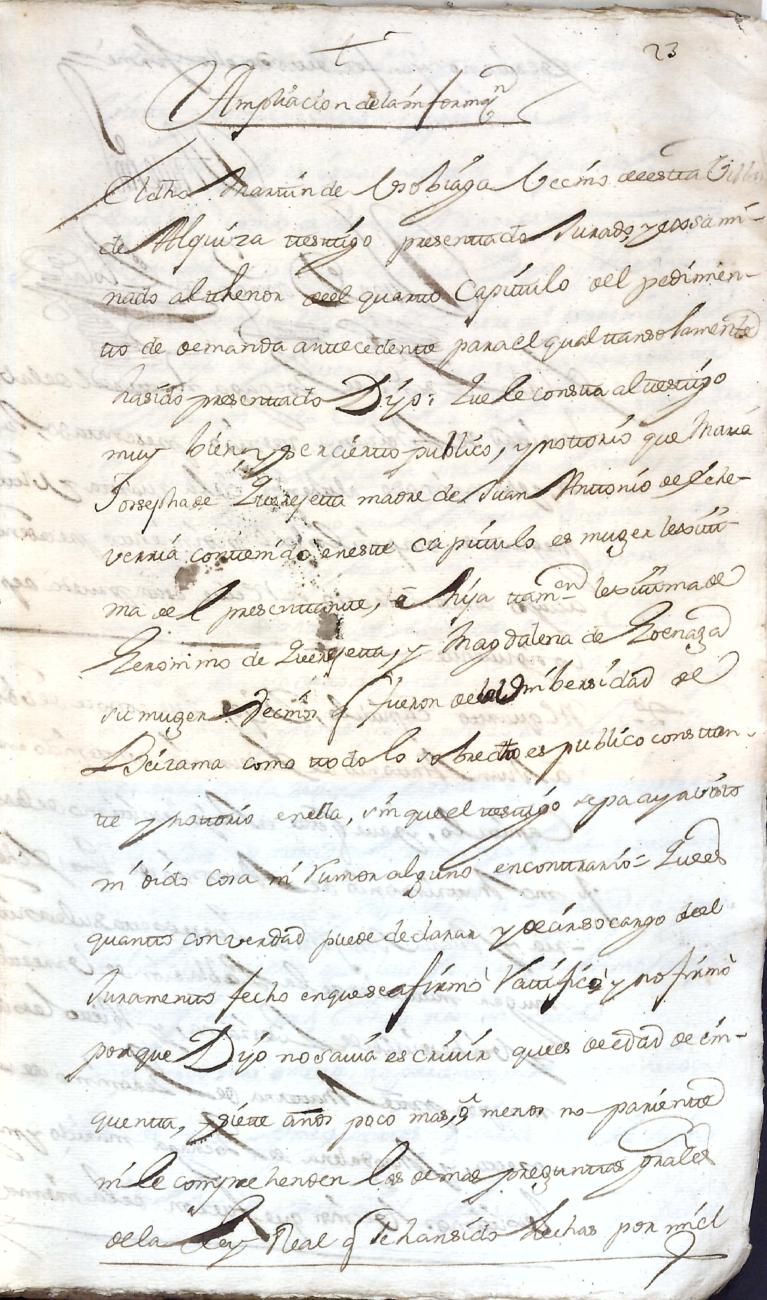 23
Ampliacion dela informaⁿ
El dho Martin de Usobiaga Vecino de esta Villa
de Alquiza testigo presentado Jurado, y exsami-
nado al thenor del quarto Capitulo del pedimen-
tto de demanda anttecedente para el qual tan solamente
ha sido presentado Dijo: Que le consta al testigo
muy bien, y ser cierto publico, y nottorio que Maria
Josepha de Querejetta madre de Juan Anttonio de Eche-
verria contenido en este capitulo es muger lexitti-
ma del presentante, é hija tamᵉⁿ lexittima de
Geronimo de Querejetta, y Magdalena de Goenaga
su muger Vecinos q fueron de la Unibersidad de
Beizama como ttodo lo sobredicho es publico constan-
te y nottorio en ella, sin que el testigo sepa aya visto
ni oido cosa ni rumor alguno en contrario = Que es
quanto con verdad puede declarar y decir so cargo del
Juramento fecho en que se afirmò Ratificò y no firmò
porque Dijo no savia escrivir que es de edad de cin-
quenta, y siete años poco mas, ò menos no pariente
ni le comprehenden las demas preguntas grâles
de la Ley Real q le han sido hechas por mi el